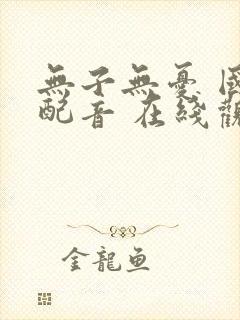 無子無憂 國
配音 在綫觀
金龍鱼